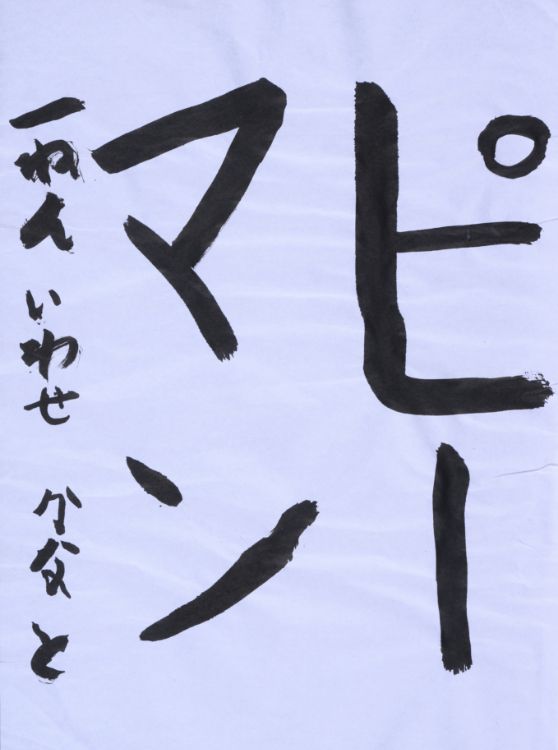 ピー
マン
一ねん いわせ かなと